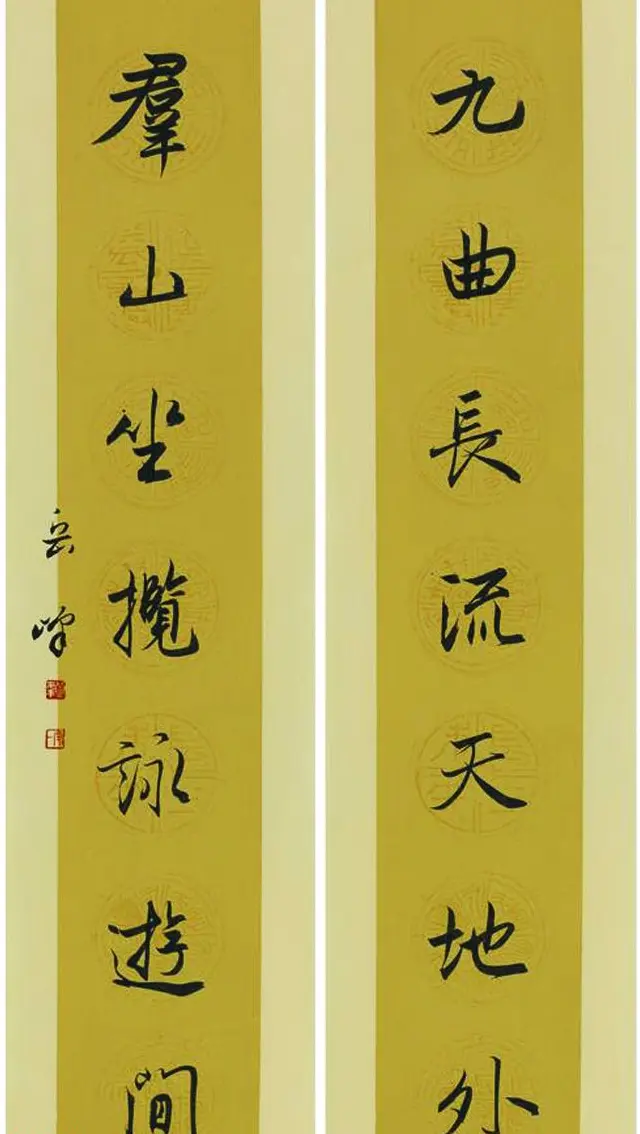 九曲長流天地外
羣山坐攬詠遊間
岳峰